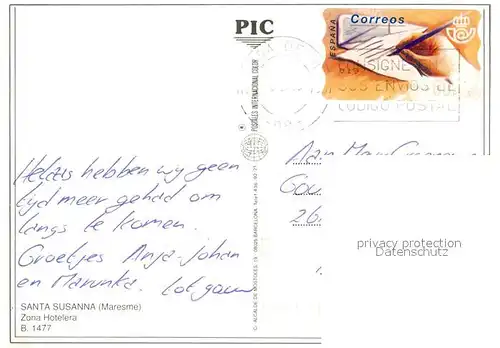 PIC
Correos
ESPAÑA
CONSIGNE
SUS ENVIOS
CODIGO POSTAL
POSTALES INTERNACIONAL COLOR
Helaas hebben wij geen
tijd meer gehad om
langs te komen.
Groetjes Anja-Johan
en Marunka. Tot gauw
SANTA SUSANNA (Maresme)
Zona Hotelera
B. 1477
Aan
26
privacy protection
Datenschutz